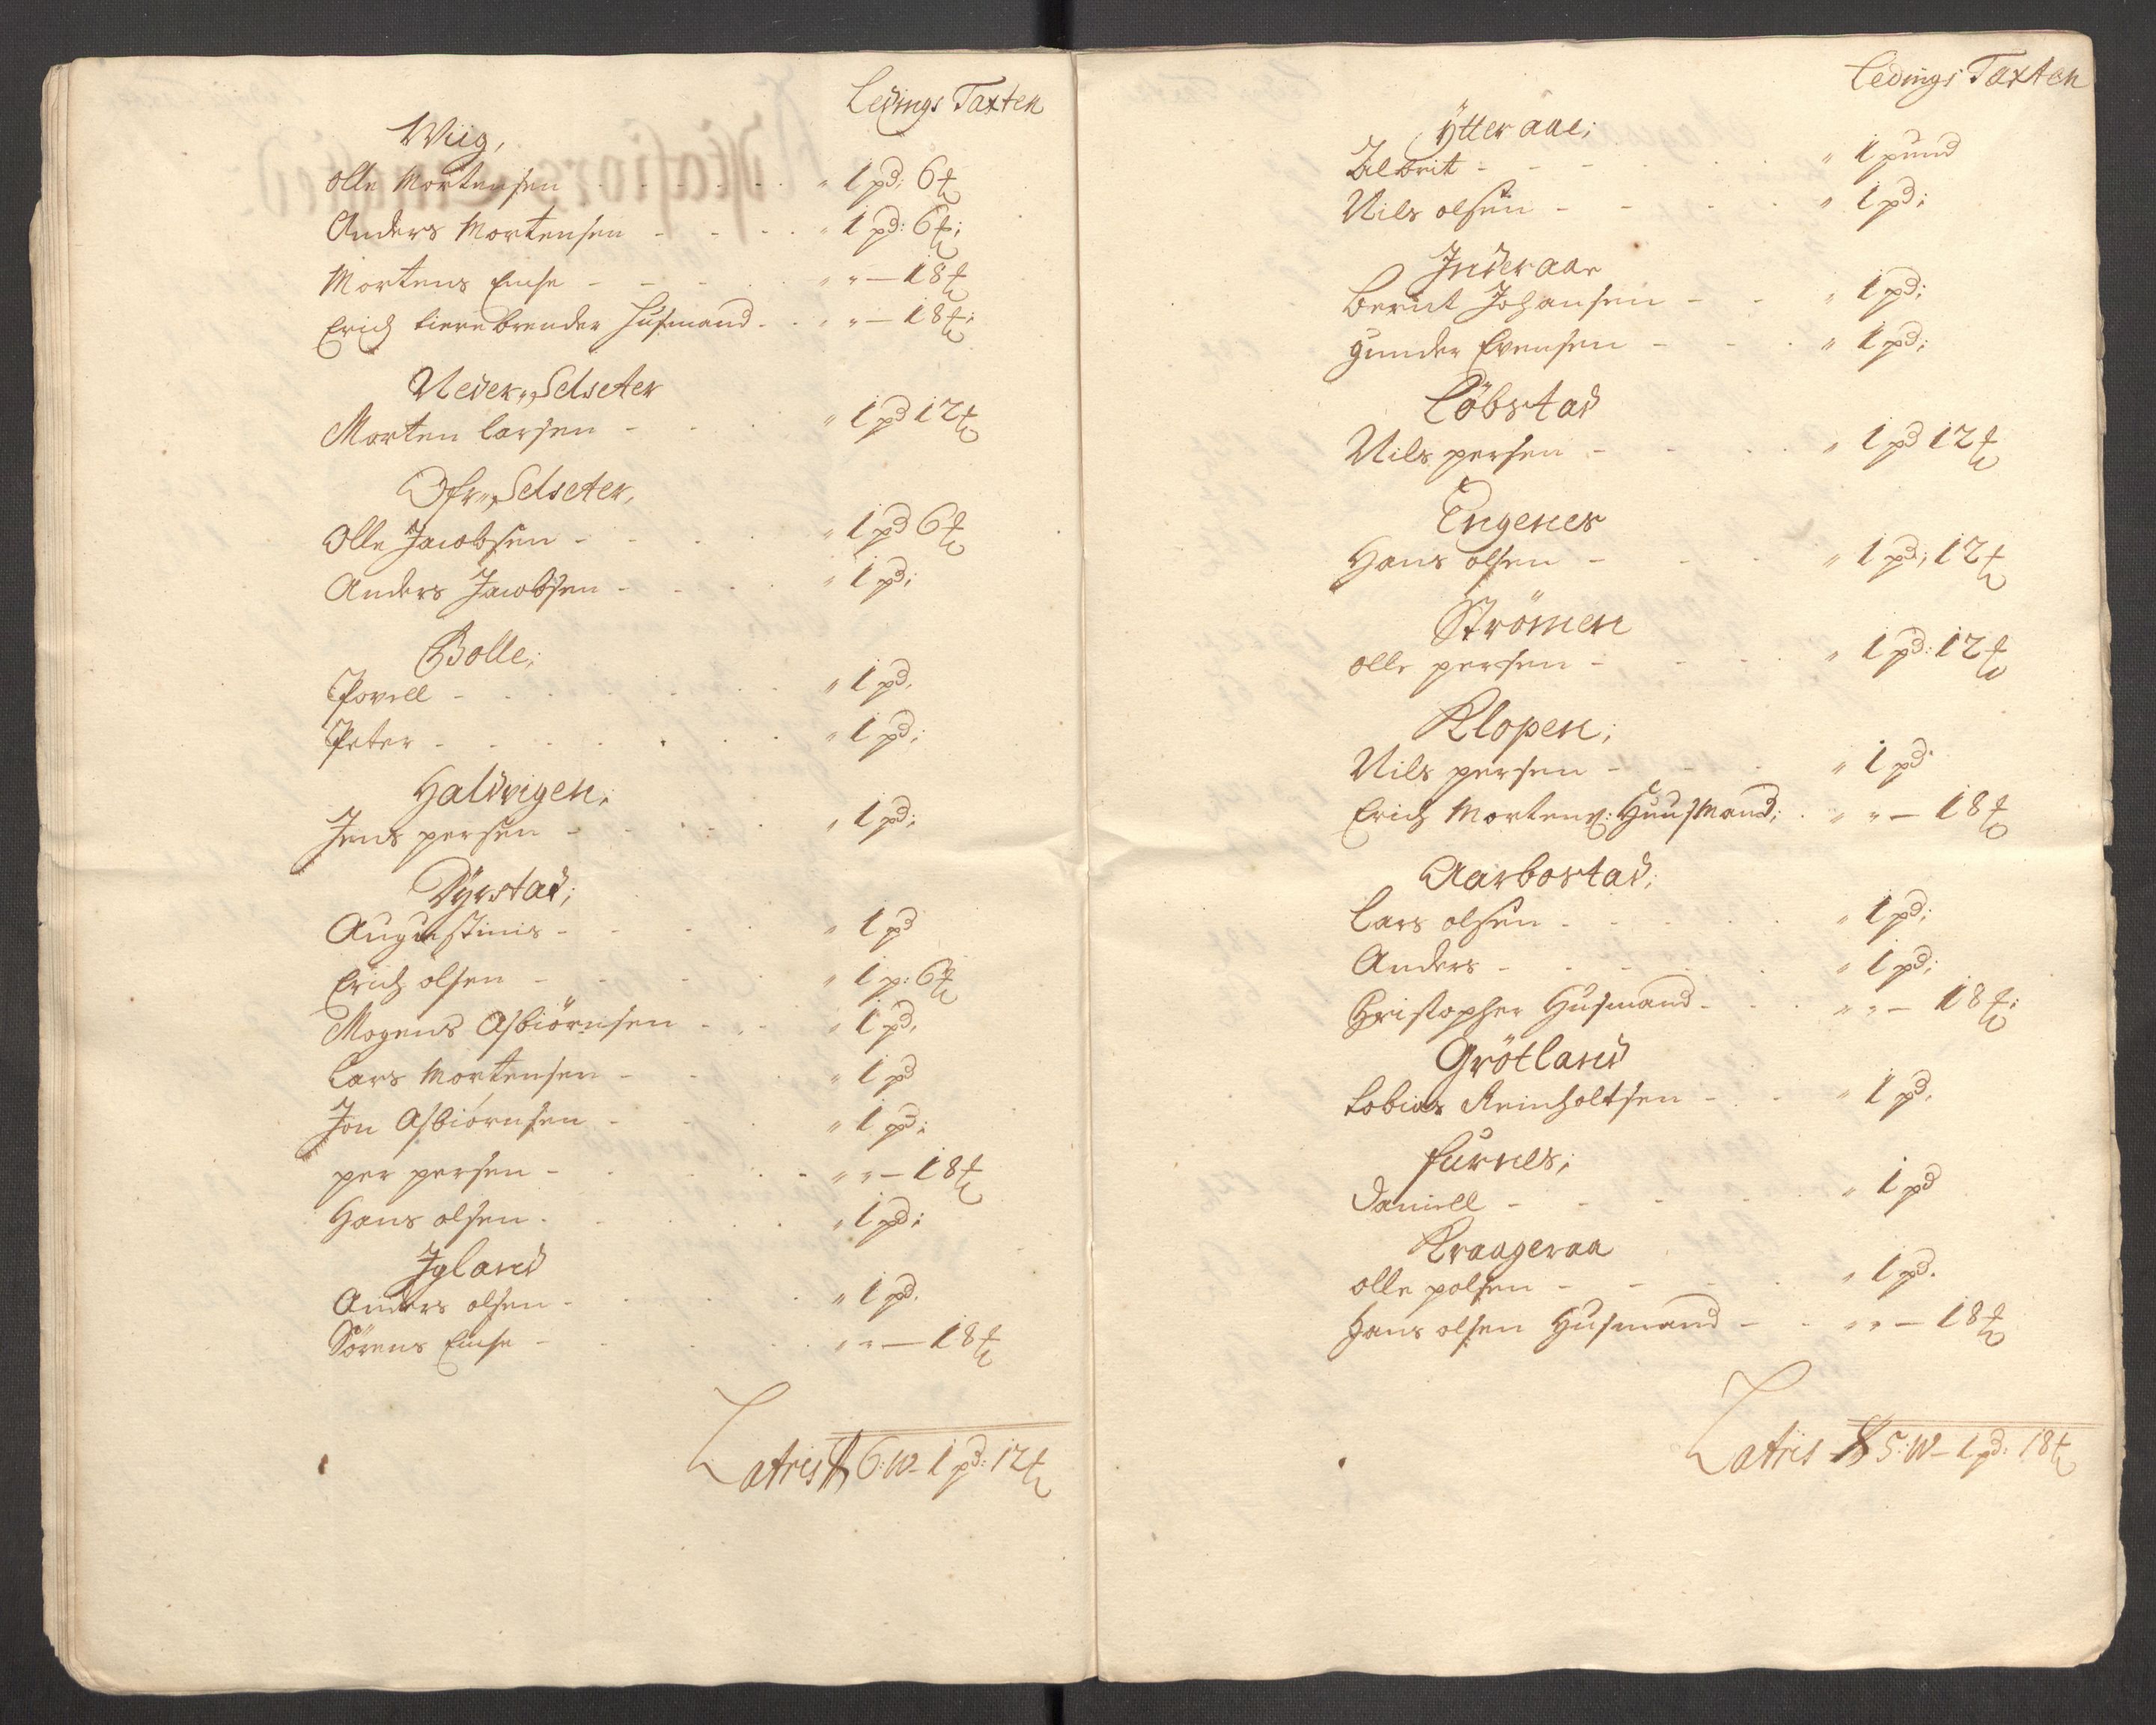 Ledings Taxten
Wiig,
Olle Mortensen - - - - - " 1 pd: 6 ℔
Anders Mortensen - - - - " 1 pd: 6 ℔;
Mortens Encke - - - - " " — 18 ℔
Erich tiere brender Husmand - - " " — 18 ℔;
Neder Selseter
Morten Larsen - - - " 1 pd 12 ℔
Ofr Selseter,
Olle Jacobsen - - - - " 1 pd 6 ℔
Anders Jacobsen - - - - " 1 pd;
Bolle;
Povell - - - - - - " 1 pd,
Peter - - - - - - - " 1 pd;
Haldvigen;
Jens persen - - - - - " 1 pd;
Dÿrstad;
Augustinus - - - - " 1 pd
Erich olsen - - - - - " 1 p: 6 ℔
Mogens Asbiörnsen - - - " 1 pd,
Lars Mortensen - - - - " 1 pd
Jon Asbiörnsen - - - " 1 pd;
per persen - - - - - " " — 18 ℔
Hans olsen - - - - - " 1 pd;
Igland
Anders olsen - - - - - " 1 pd.
Sörens Encke - - - - - " " — 18 ℔
Latris 6: W - 1 pd: 12 ℔
Ledings Taxten
Ÿtter aae;
Albrit - - - - - - " 1 pund
Nils olsen - - - - - " 1 pd;
Inder aae
Bernt Johansen - - - " 1 pd;
Gunder Evensen - - - " 1 pd;
Löbstad
Nils persen - - - - " 1 pd 12 ℔
Engenes
Hans olsen - - - " 1 pd; 12 ℔
Strömen
olle persen - - - - " 1 pd: 12 ℔
Klopen;
Nils persen - - - - " 1 pd
Erich Mortens: Huusmand; - " " — 18 ℔
Aarbostad;
Lars olsen - - - - - " 1 pd;
Anders - - - - - - " 1 pd;
Christopher Husmand - - - " " — 18 ℔;
Grötland
Tobias Reinholtsen - - - " 1 pd,
furnes;
Daniell - - - - - - " 1 pd
Kraageraa
olle polsen - - - - - " 1 pd.
Hans olsen Husmand - - " " — 18 ℔
Latris 5: W - 1 pd: 18 ℔